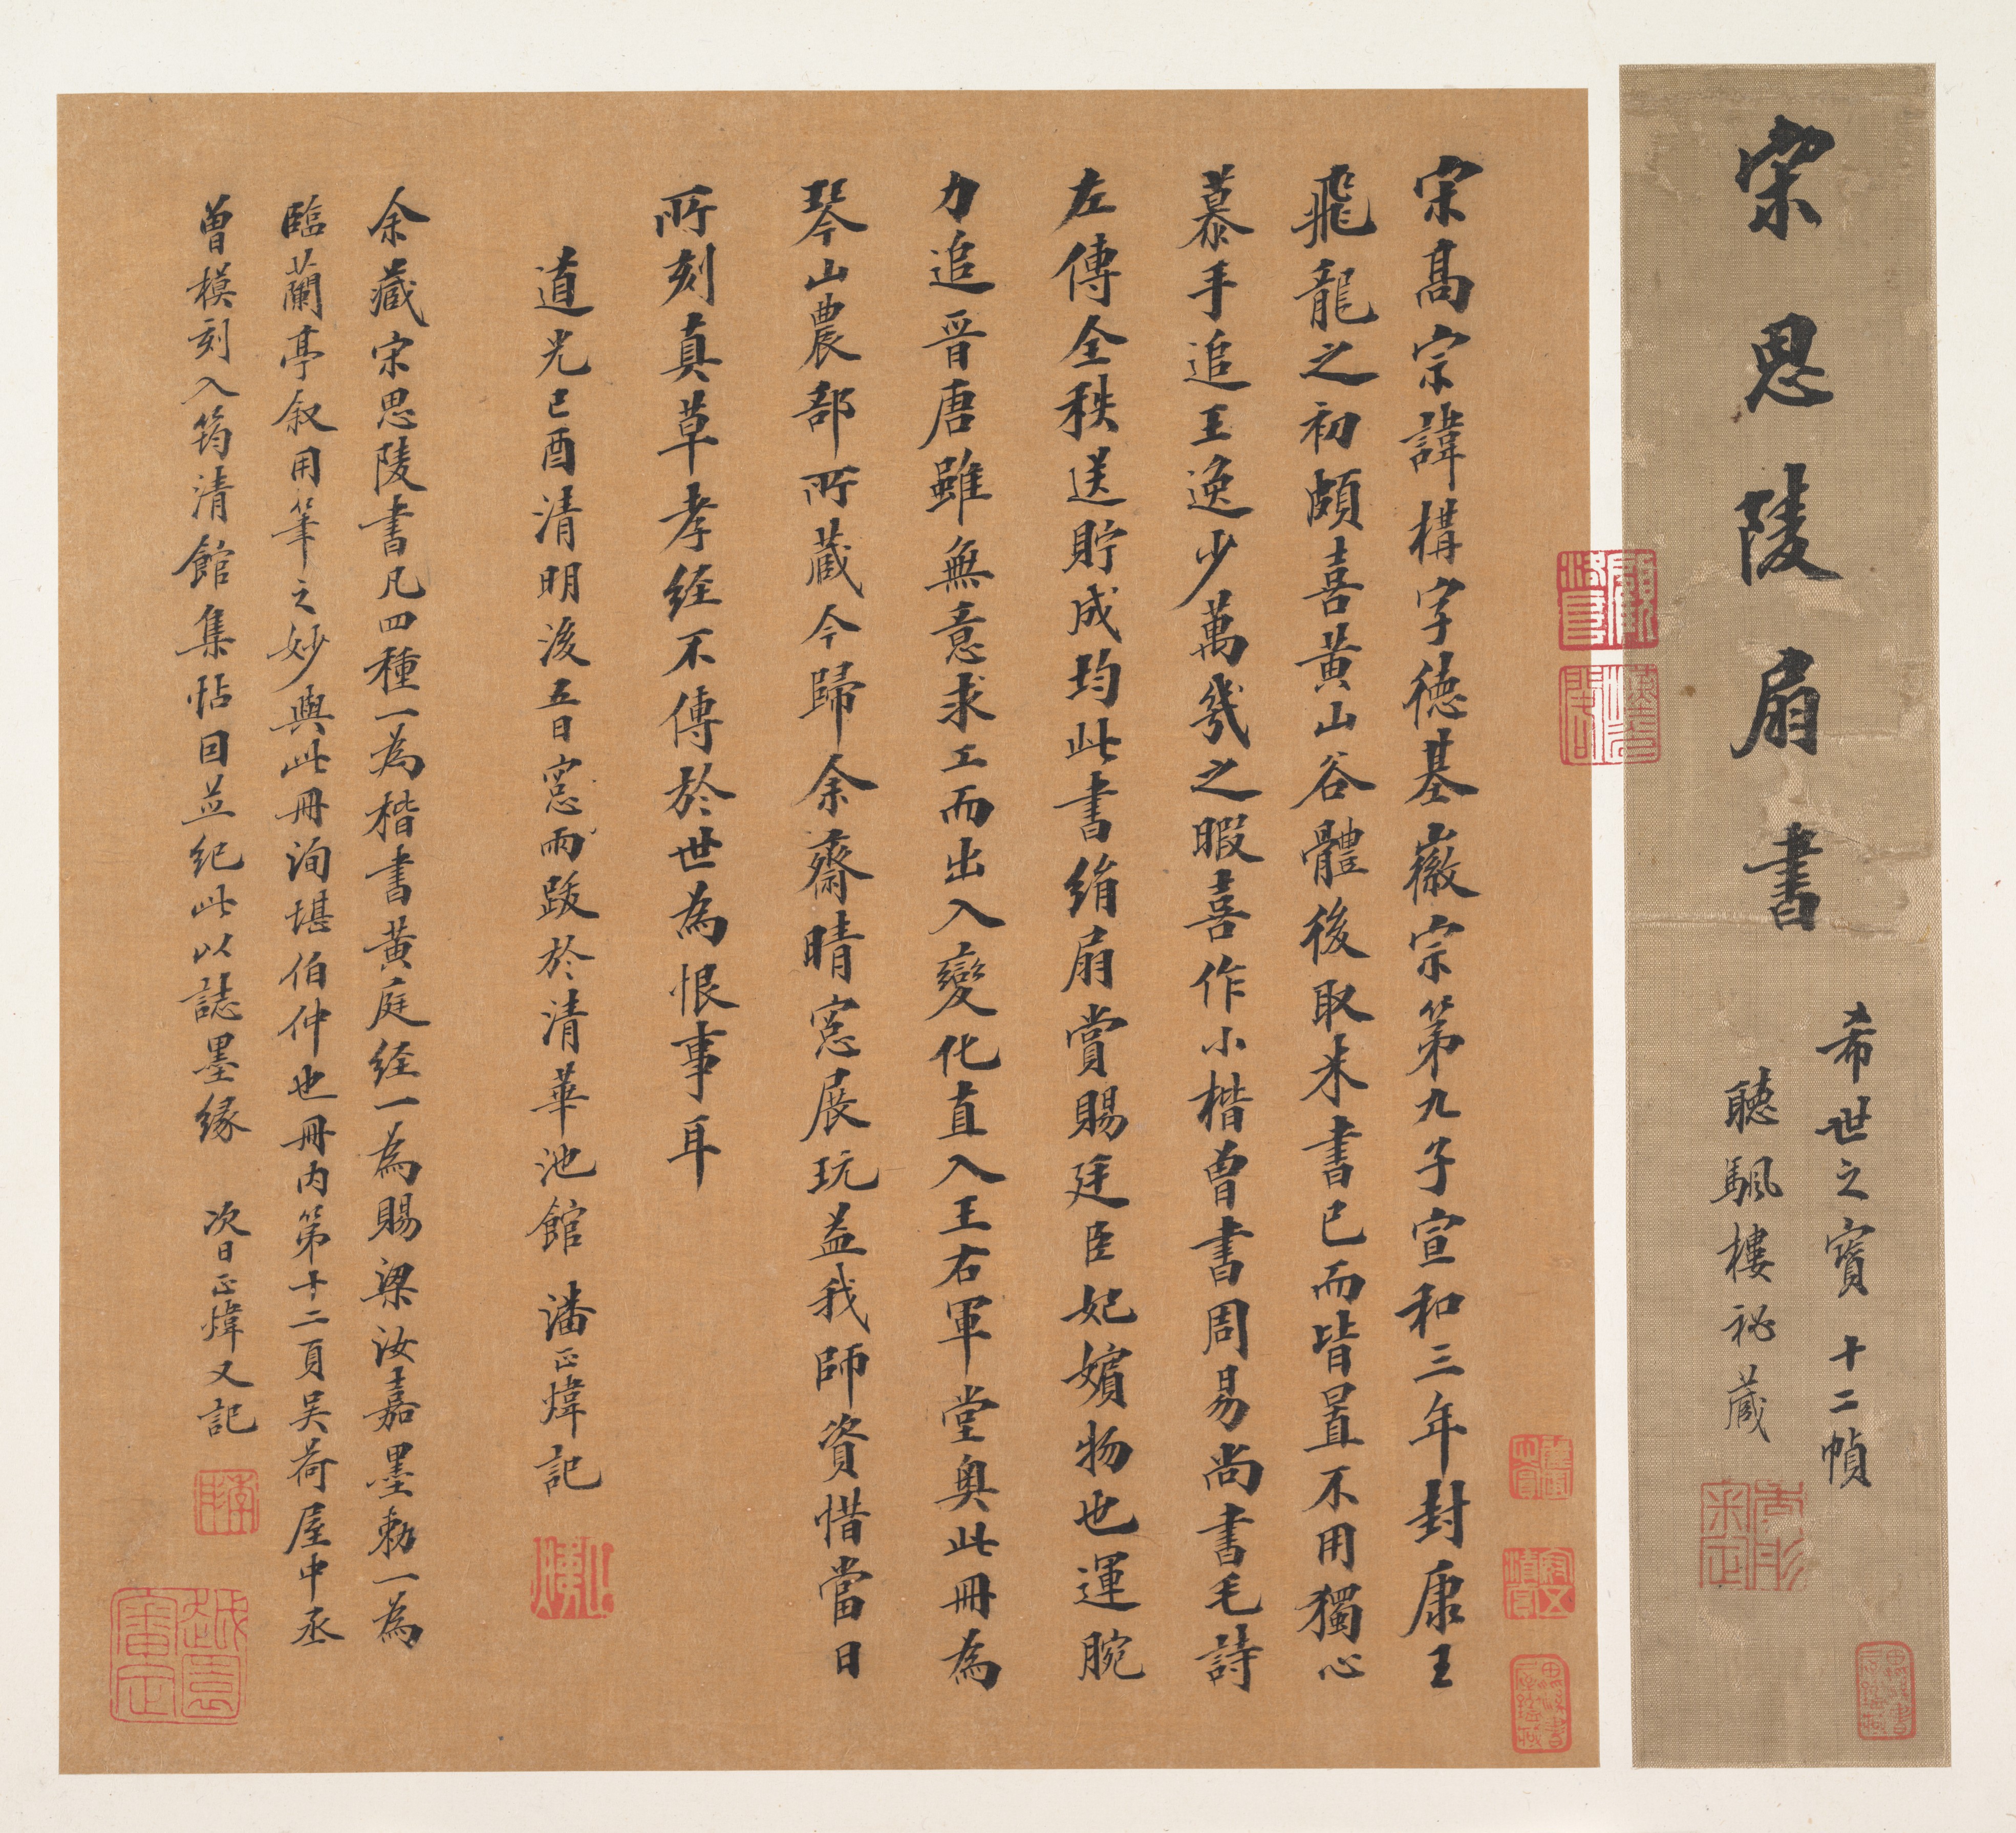 宋思陵扇書
希世之寳 十二幀
聽颿樓祕藏
宋髙宗諱構字徳基徽宗第九子宣和三年封康王
飛龍之初頗喜黃山谷體後取米書已而皆置不用獨心
慕手追王逸少萬幾之暇喜作小楷曾書周易尚書毛詩
左傳全秩送貯成均此書絹扇賞賜廷臣妃嬪物也運腕
力追晉唐雖無意求工而出入變化直入王右軍堂奥此冊為
琴山農部所藏今歸余齋晴窓展玩益我師資惜當日
所刻真草孝経不傳於世為恨事耳
道光己酉清明後五日窓雨跋於清華池館 潘正煒記
余藏宋思陵書凡四種一為楷書黃庭経一為賜梁汝嘉墨勅一為
臨蘭亭叙用筆之妙與此冊洵堪伯仲也冊内第十二頁吴荷屋中丞
曾模刻入筠清館集帖因並纪此以誌墨縁 次日正煒又記